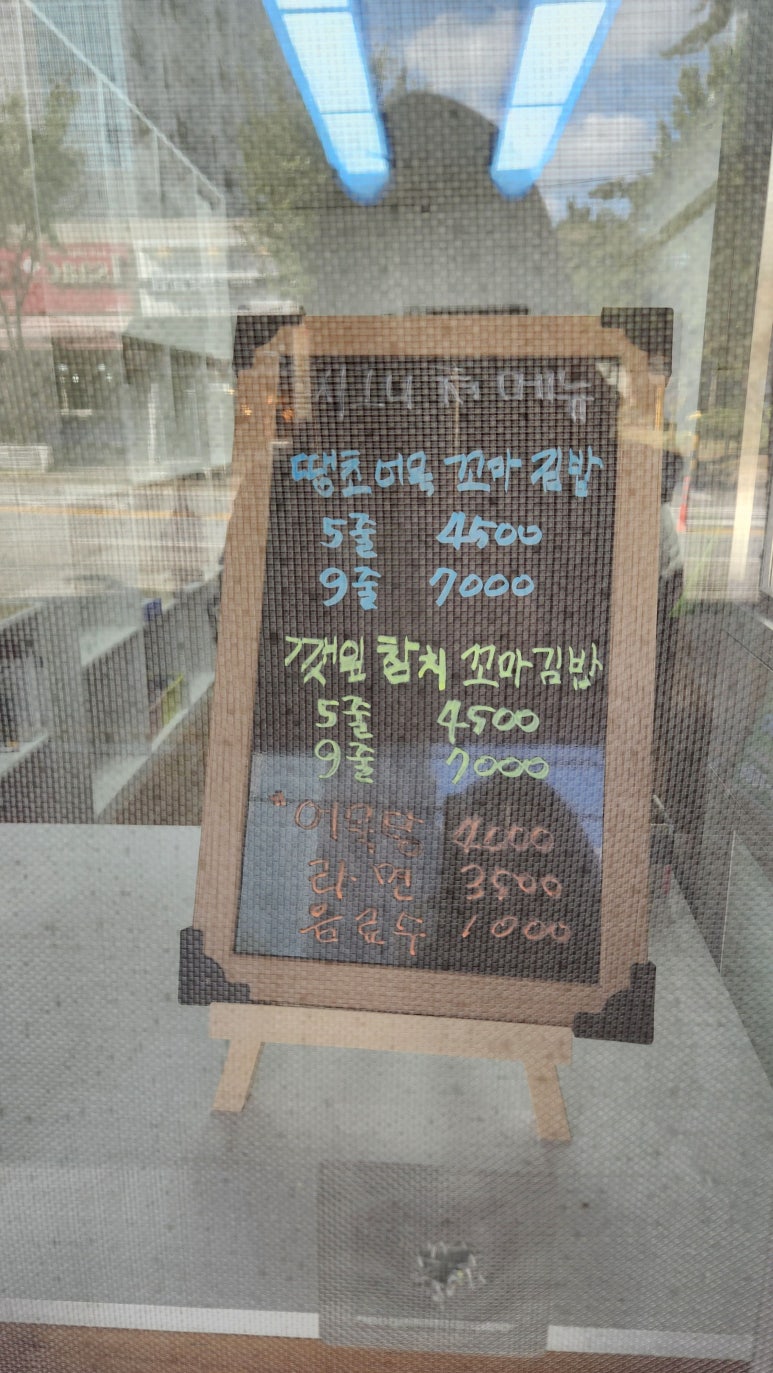 메뉴
땡초어묵 꼬마 김밥
5줄 4500
9줄 7000
깻잎 참치 꼬마김밥
5줄 4500
9줄 7000
*어묵탕 4000
라면 3500
음료수 1000